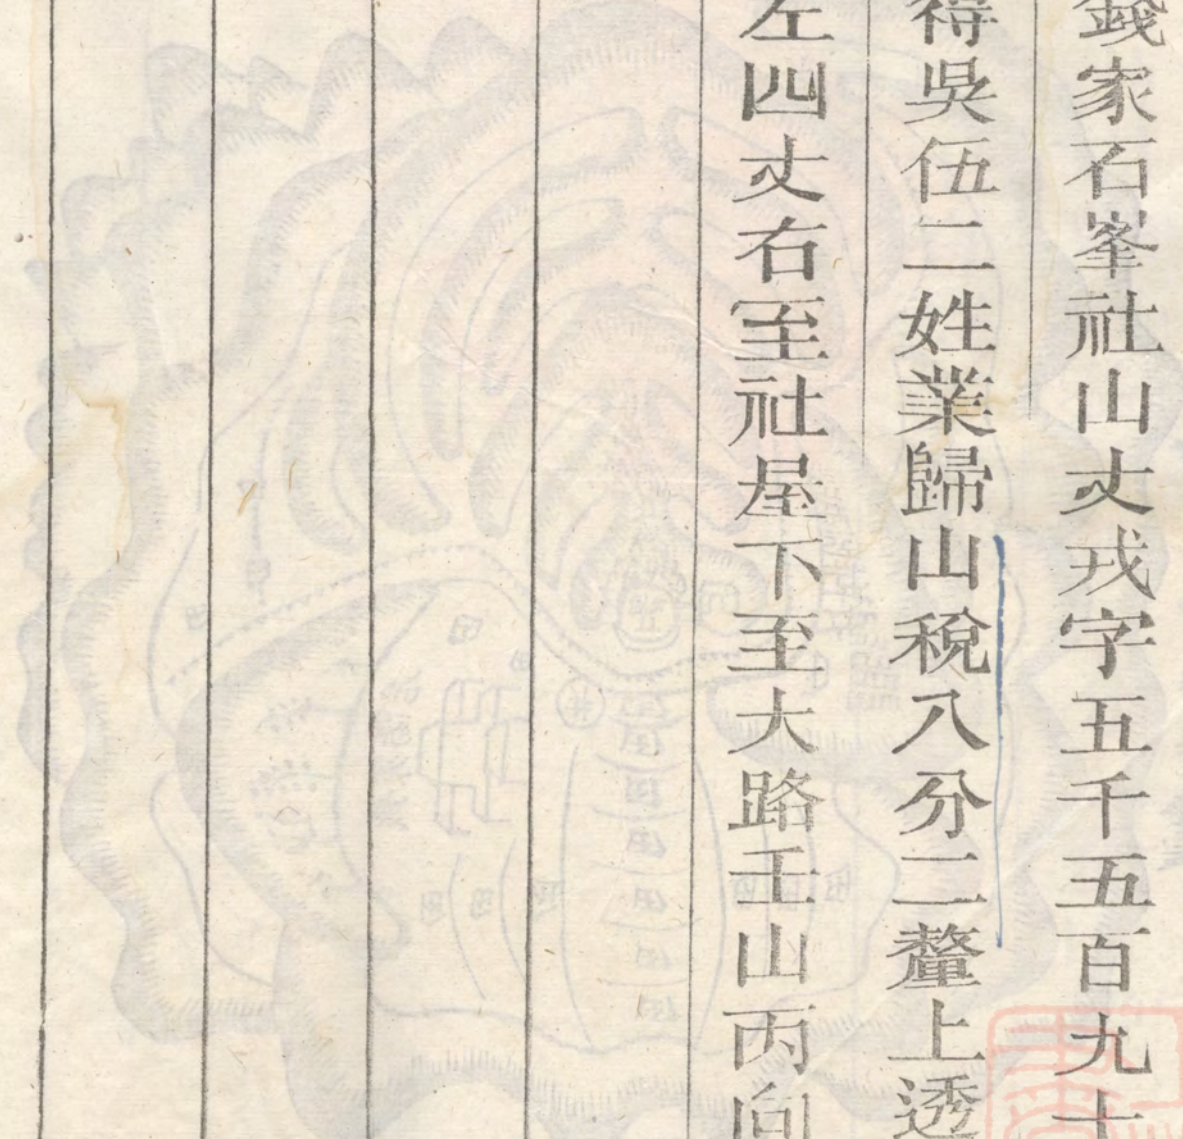 錢家石峯社山丈戎字五千五百九十
得吳伍二姓業歸山稅八分二釐上透
左四丈右至社屋下至大路壬山丙向